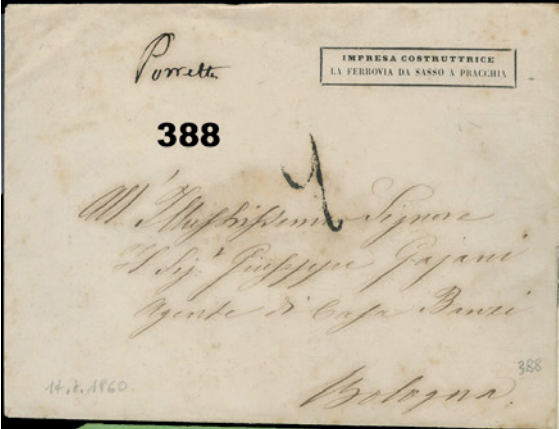 Porretta
IMPRESA COSTRUTTRICE
LA FERROVIA DA SASSO A PRACCHIA
388
All' Illustrissimo Signore
Il Sig.r Giuseppe Gajani
Agente di Casa Banzi
388
Bologna.